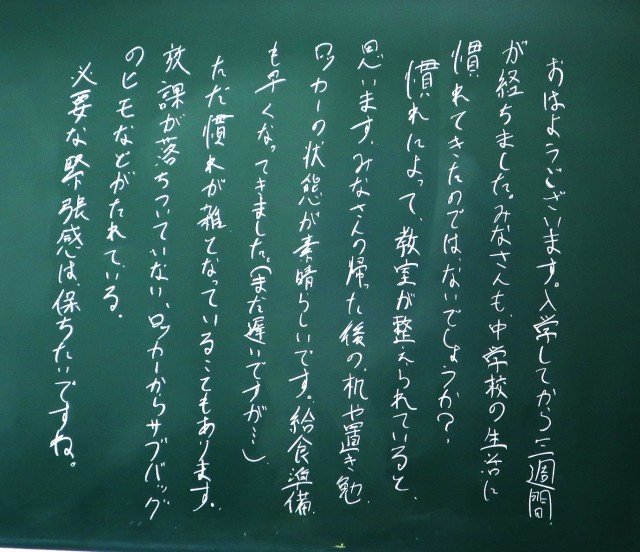 おはようございます。入学してから三週間
が経ちました。みなさんも、中学校の生活に
慣れてきたのでは、ないでしょうか？
慣れによって、教室が整えられていると、
思います。みなさんの帰った後の、机や置き勉、
ロッカーの状態が素晴らしいです。給食準備
も早くなってきました。（まだ遅いですが…）
ただ慣れが雑となっていることもあります。
放課が落ちついていない、ロッカーからサブバッグ
のヒモなどがたれている。
必要な緊張感は、保ちたいですね。